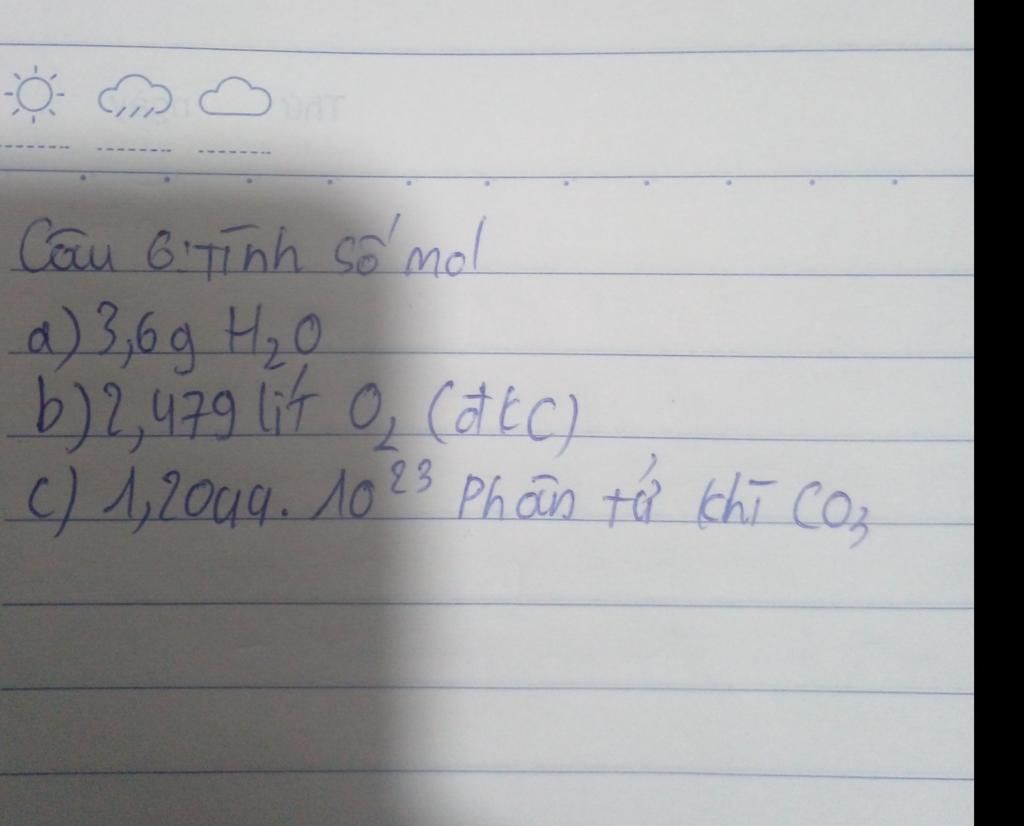 Câu 6: Tính số mol
a) 3,6g H₂O
b) 2,479 lít O₂ (đkc)
c) 1,2044.10²³ Phân tử khí CO₃